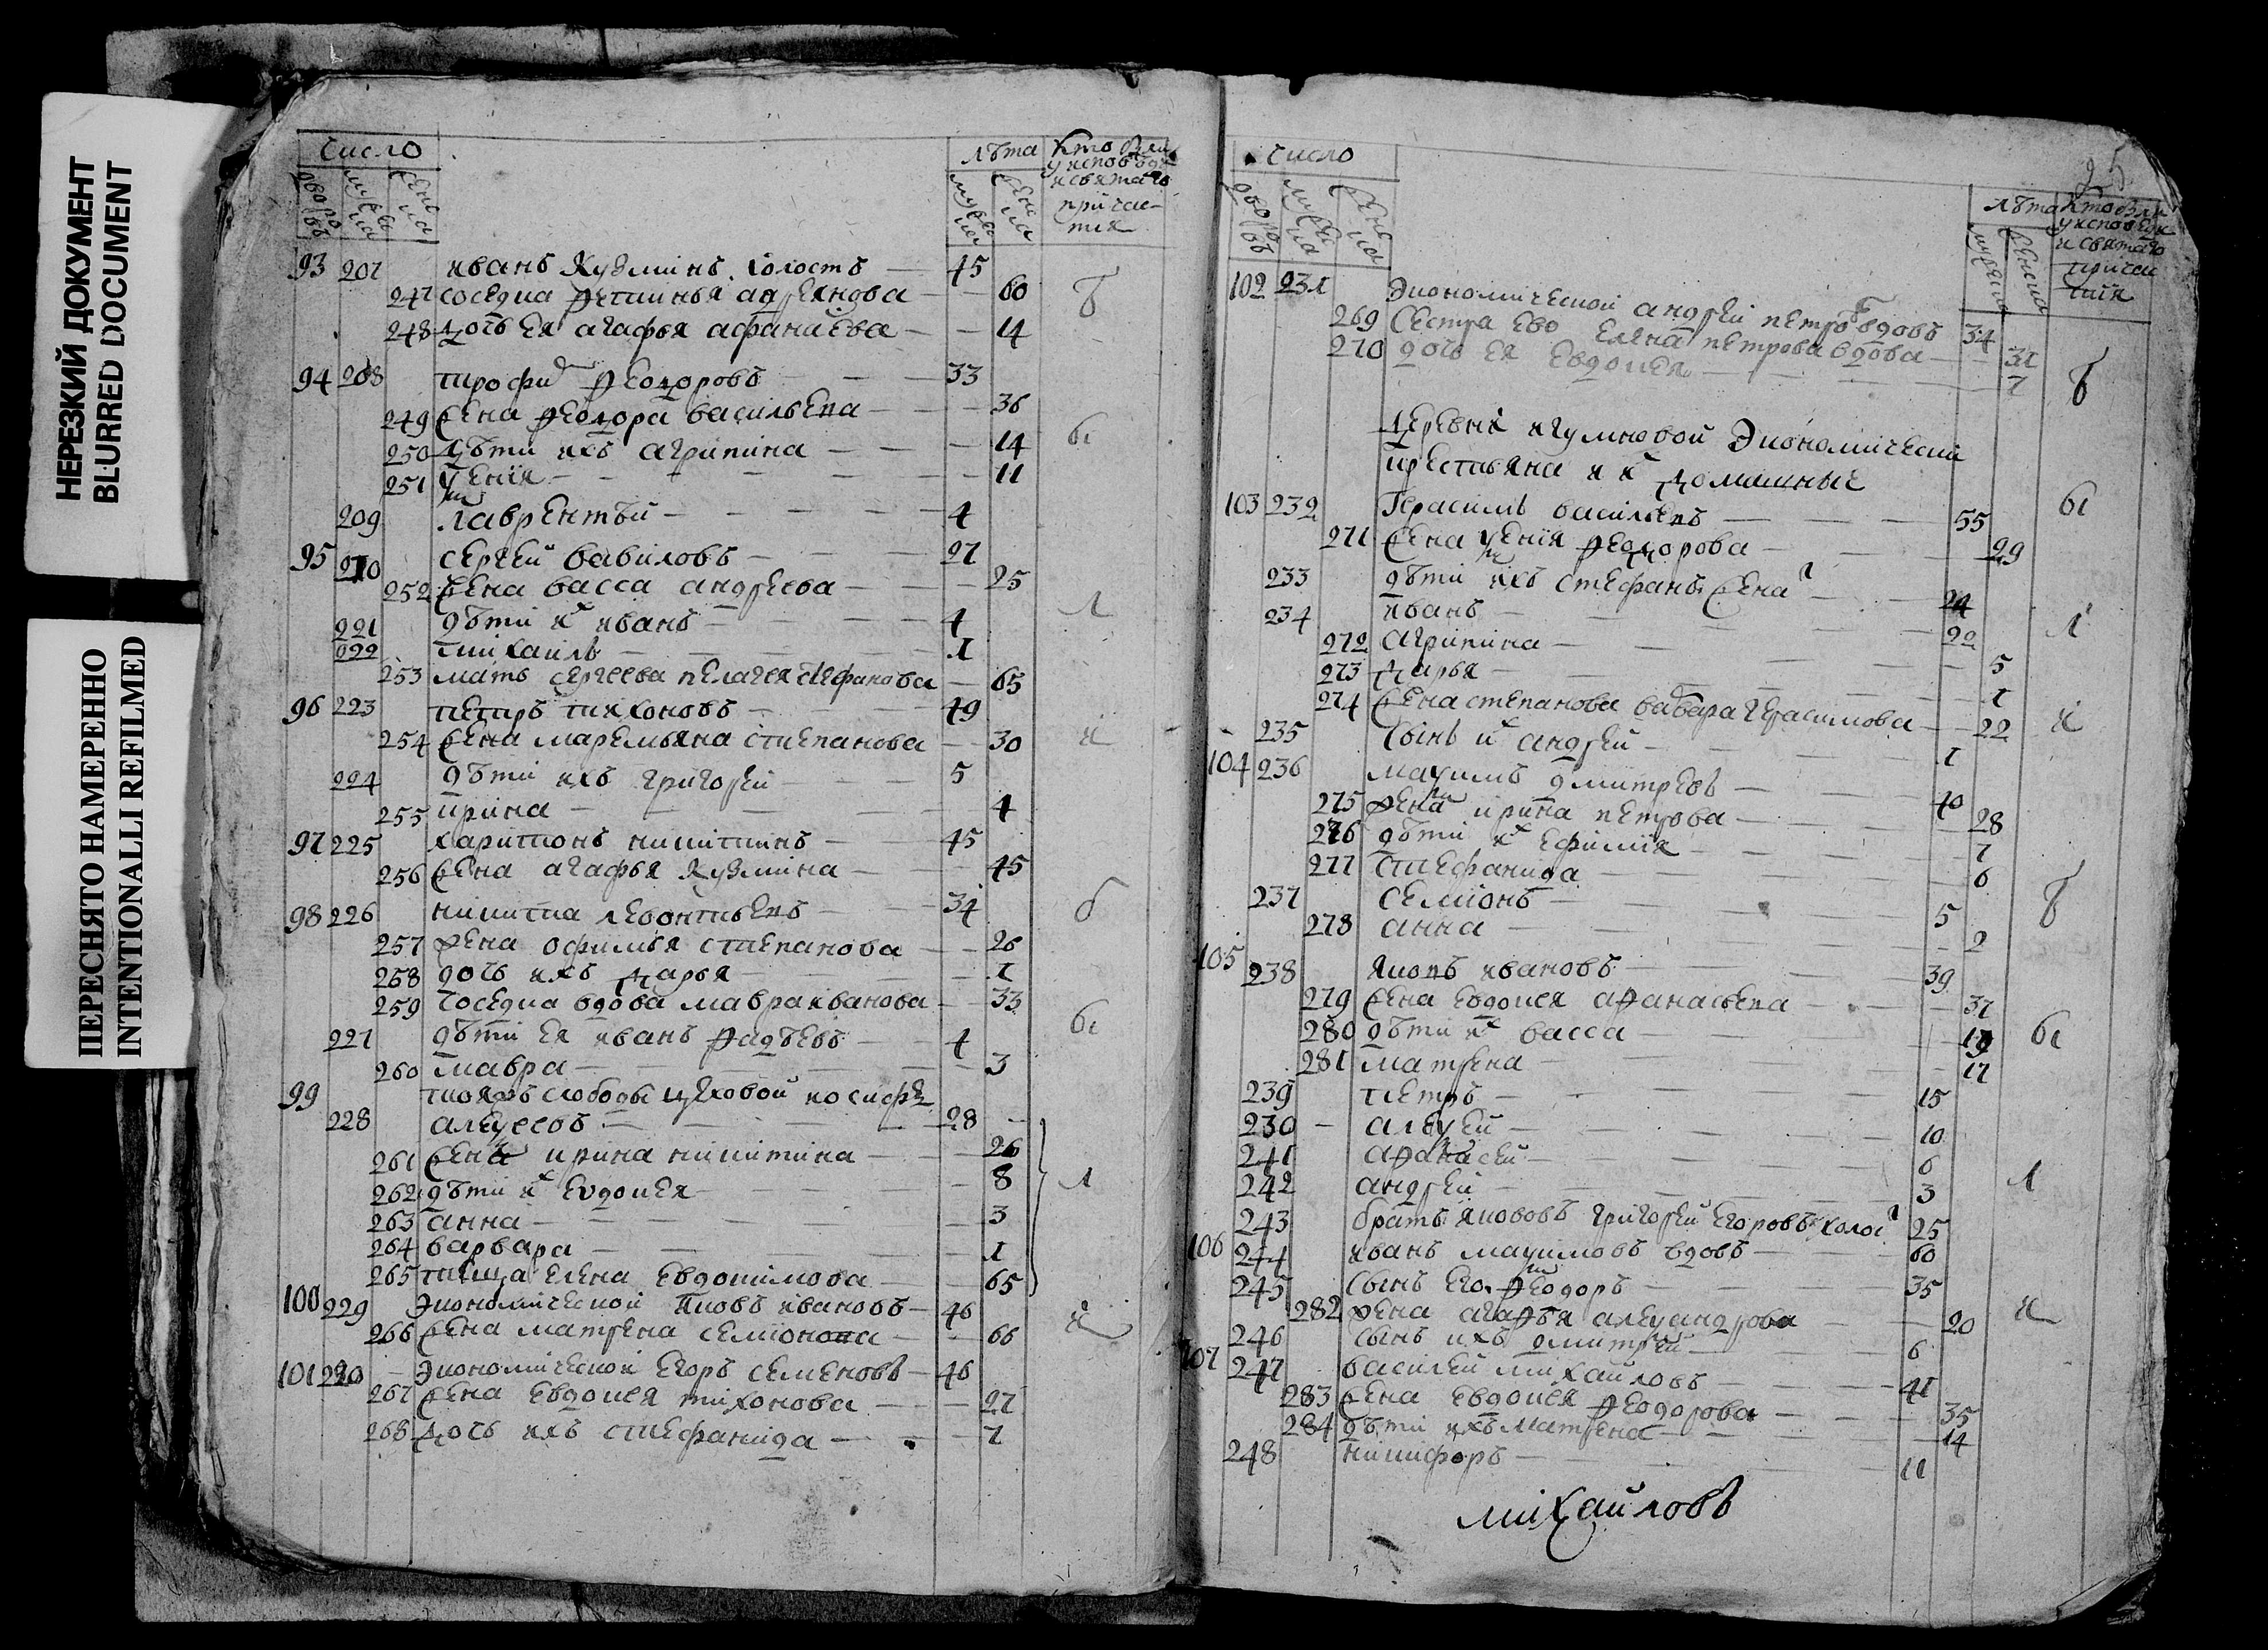 НЕРЕЗКИЙ ДОКУМЕНТ
BLURRED DOCUMENT
ПЕРЕСНЯТО НАМЕРЕННО
INTENTIONALLI REFILMED
число
лѣта
93 207 иванъ кузминъ холостъ 45
247 соседка 60
248 дочь ея агафья афанасева 14
94 208 трофи ѳеодоровъ 33
249 жена ѳеодора васильева 36
250 дѣти ихъ агрипина 14
251 11
209 лаврентѣй 4
95 210 сергей вавиловъ 27
252 жена васса андреева 25
221 дѣти их иванъ 4
222 михаилъ 1
253 мать сергеева пелагея стефанова 65
96 223 петръ тихоновъ 49
254 жена маремьяна степанова 30
224 дѣти ихъ григорей 5
255 ирина 4
97 225 харитонъ никитинъ 45
256 жена агафья кузмина 45
98 226 никита левонтьевъ 34
257 жена офимья степанова 26
258 дочь ихъ дарья 1
259 соседка вдова мавра иванова 33
227 дѣти ея иванъ фадѣевъ 4
260 мавра 3
99 слободы
228 алеѯеевъ 28
261 жена ирина никитина 26
262 дѣти их евдокея 8
263 анна 3
264 варвара 1
265 теща елена евдокимова 65
100 229 экономической яковъ ивановъ 46
266 жена матрена семионова 66
101 230 экономической егоръ семеновъ 46
267 жена евдокея тихонова 27
268 дочь ихъ стефанида 7
25
число
лѣта
102 231 экономической андрей петровъ вдовъ 34
269 сестра ево елена петрова вдова 31
270 дочь ея евдокея 7
деревни игумновой экономически
крестьяна и их домашныя
103 232 герасимъ васильевъ 55
271 жена ѯения ѳеодорова 29
233 дѣти ихъ стефанъ жена 24
234 иванъ 22
272 агрипина 5
273 дарья 1
274 жена степанова варвара герасимова 22
235 сынъ их андрей 1
104 236 маѯимъ дмитревъ 40
275 жена ирина петрова 28
276 дѣти их ефимия 7
277 стефанида 6
237 семионъ 5
278 анна 2
105 238 яковъ ивановъ 39
279 жена евдокея афанасьева 37
280 дѣти их васса 19
281 матрена 17
239 петръ 15
230 алеѯей 10
241 афанасей 6
242 андрей 3
243 братъ яковов григорей егоровъ холос 25
106 244 иванъ маѯимовъ вдовъ 60
245 сынъ его ѳеодоръ 35
282 жена агафья алеѯандрова 20
246 сынъ ихъ дмитрей 6
107 247 василей михайловъ 41
283 жена евдокея ѳеодорова 35
284 дѣти ихъ матрена 14
248 никифоръ 11
михайловъ